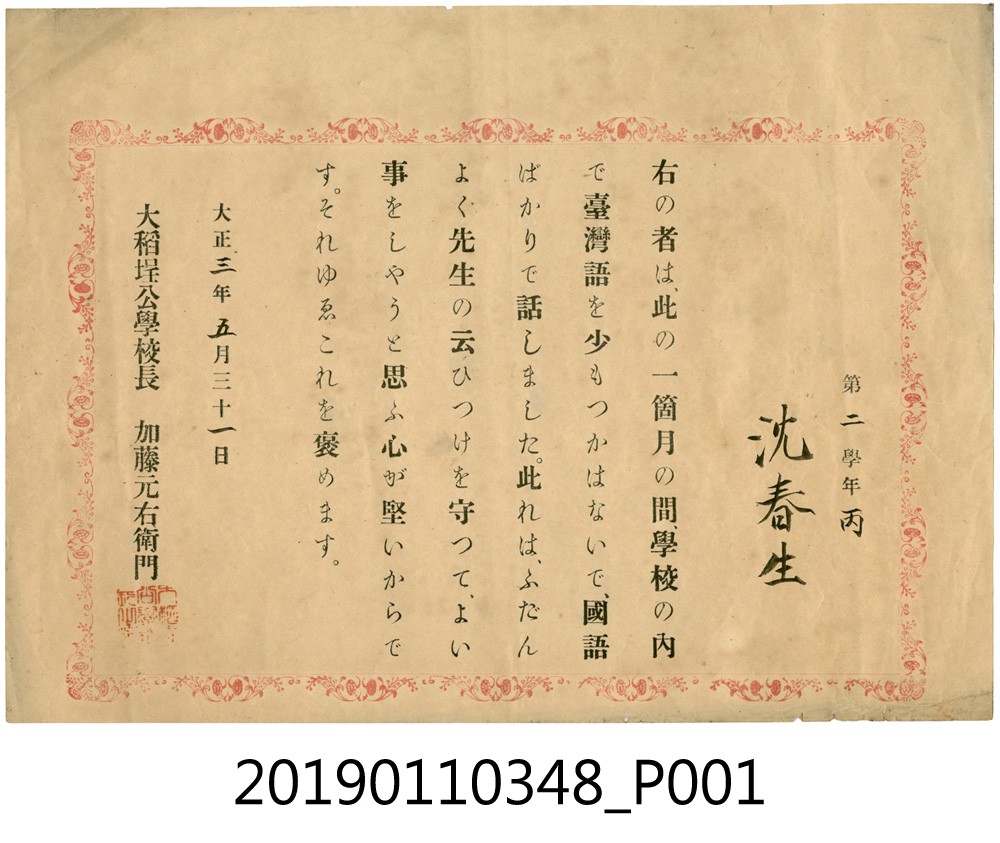 第二學年丙
沈春生
右の者は、此の一箇月の間、學校の內
で臺灣語を少もつかはないで、國語
ばかりで話しました。此れは、ふだん
よく先生の云ひつけを守つて、よい
事をしやうと思ふ心が堅いからで
す。それゆゑこれを褒めます。
大正三年五月三十一日
大稻埕公學校長 加藤元右衞門
20190110348_P001